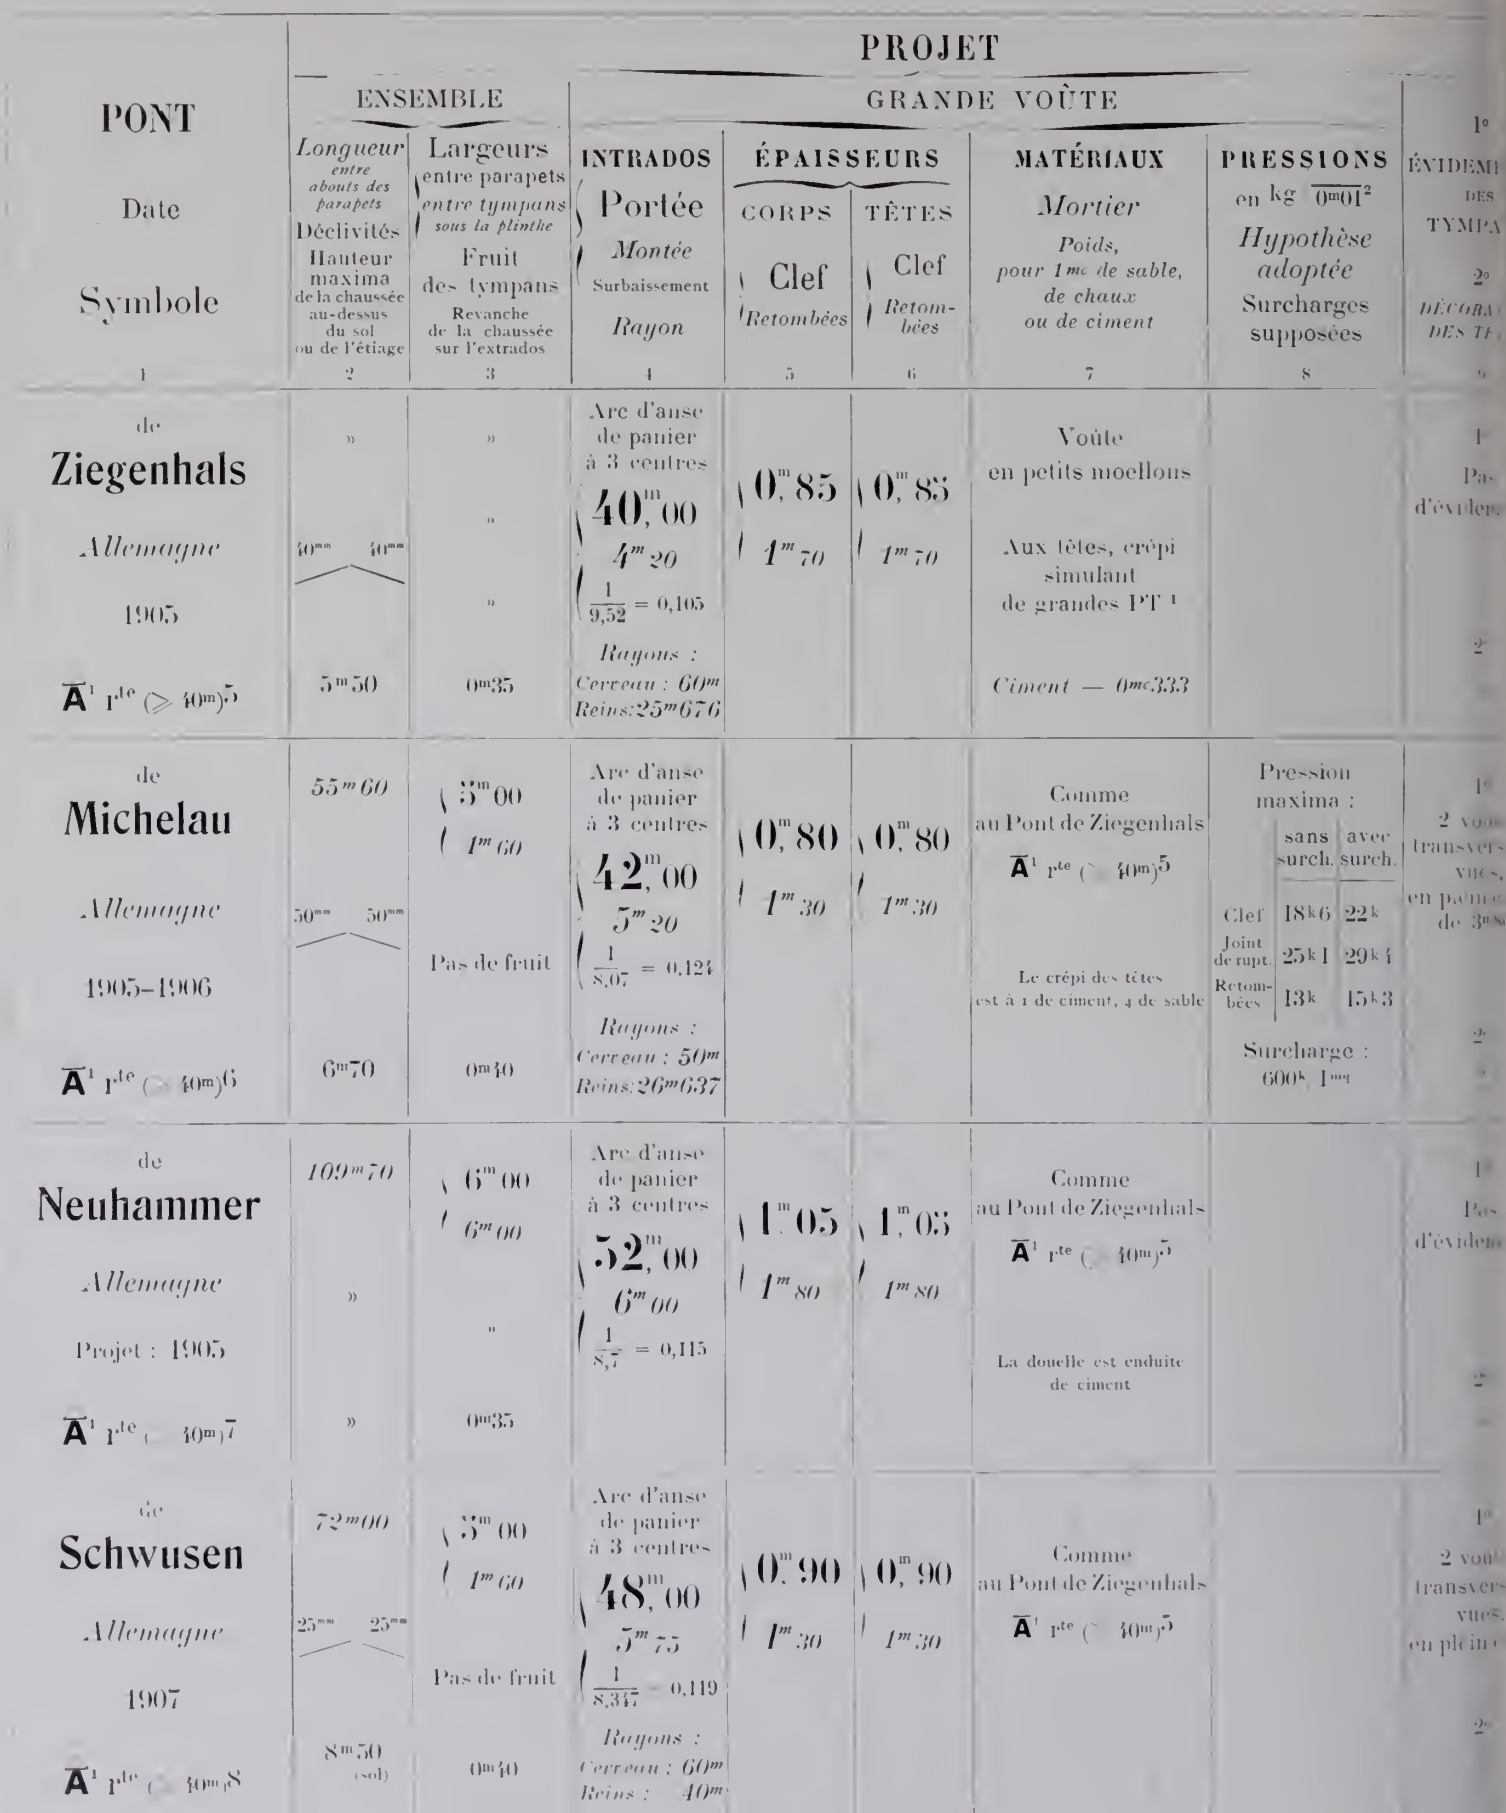 PROJET
PONT
Date
Symbole
1
ENSEMBLE
Longueur
entre
abouts des
parapets
Déclivités
Hauteur
maxima
de la chaussée
au-dessus
du sol
ou de l'étiage
2
Largeurs
entre parapets
entre tympans
sous la plinthe
Fruit
des tympans
Revanche
de la chaussée
sur l'extrados
3
GRANDE VOÛTE
INTRADOS
Portée
Montée
Surbaissement
Rayon
4
ÉPAISSEURS
CORPS
Clef
Retombées
5
TÊTES
Clef
Retom-
bées
6
MATÉRIAUX
Mortier
Poids,
pour 1mc de sable,
de chaux
ou de ciment
7
PRESSIONS
en kg 0m01²
Hypothèse
adoptée
Surcharges
supposées
8
1º
DES
2º
de
Ziegenhals
Allemagne
1905
A¹ rte (⩾ 40m)5
»
40mm 40mm
5m50
»
»
»
0m35
Arc d'anse
de panier
à 3 centres
40m,00
4m20
1/9,52 = 0,105
Rayons :
Cerveau : 60m
Reins: 25m676
0m,85
1m70
0m,85
1m70
Voûte
en petits moellons
Aux têtes, crépi
simulant
de grandes PT 1
Ciment — 0mc333
Pas
2º
de
Michelau
Allemagne
1905-1906
A¹ rte ( 40m)6
55m60
50mm 50mm
6m70
5m00
1m60
Pas de fruit
0m40
Arc d'anse
de panier
à 3 centres
42m,00
5m20
1/8,07 = 0,124
Rayons :
Cerveau : 50m
Reins: 26m637
0m,80
1m30
0m,80
1m30
Comme
au Pont de Ziegenhals
A¹ rte ( 40m)5
Le crépi des têtes
est à 1 de ciment, 4 de sable
Pression
maxima :
sans surch. avec surch.
Clef 18k6 22k
Joint de rupt. 25k1 29k4
Retom-bées 13k 15k3
Surcharge :
600k 1mq
1º
2
2º
de
Neuhammer
Allemagne
Projet : 1905
A¹ rte ( 40m)7
109m70
»
»
6m00
6m00
»
0m35
Arc d'anse
de panier
à 3 centres
52m,00
6m00
1/8,7 = 0,115
1m,05
1m80
1m,05
1m80
Comme
au Pont de Ziegenhals
A¹ rte ( 40m)5
La douelle est enduite
de ciment
1º
Pas
2º
de
Schwusen
Allemagne
1907
A¹ rte ( 40m)8
72m00
25mm 25mm
8m50
(sol)
5m00
1m60
Pas de fruit
0m40
Arc d'anse
de panier
à 3 centres
48m,00
5m75
1/8,347 = 0,119
Rayons :
Cerveau : 60m
Reins : 40m
0m,90
1m30
0m,90
1m30
Comme
au Pont de Ziegenhals
A¹ rte ( 40m)5
1º
2
en plein
2º